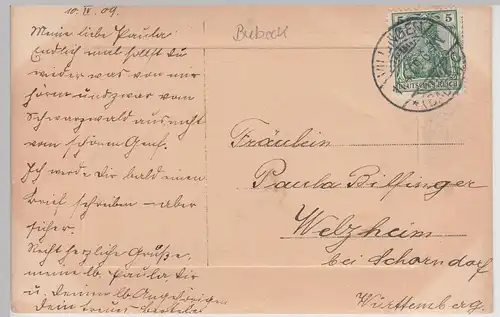 10. IV. 09.
Meine liebe Paula
Endlich mal sollst du
wieder was von mir
hören und zwar vom
Schwarzwald aus nicht
vom schönen Genf.
Ich werde Dir bald einen
Brief schreiben – aber
sicher.
Recht herzliche Grüsse,
meine lb. Paula, Dir
u. Deinen lb. Angehörigen
Dein treues
5 5
DEUTSCHES REICH
VILLINGEN
Fräulein
Paula Bilfinger
Welzheim
bei Schorndorf
Württemberg.